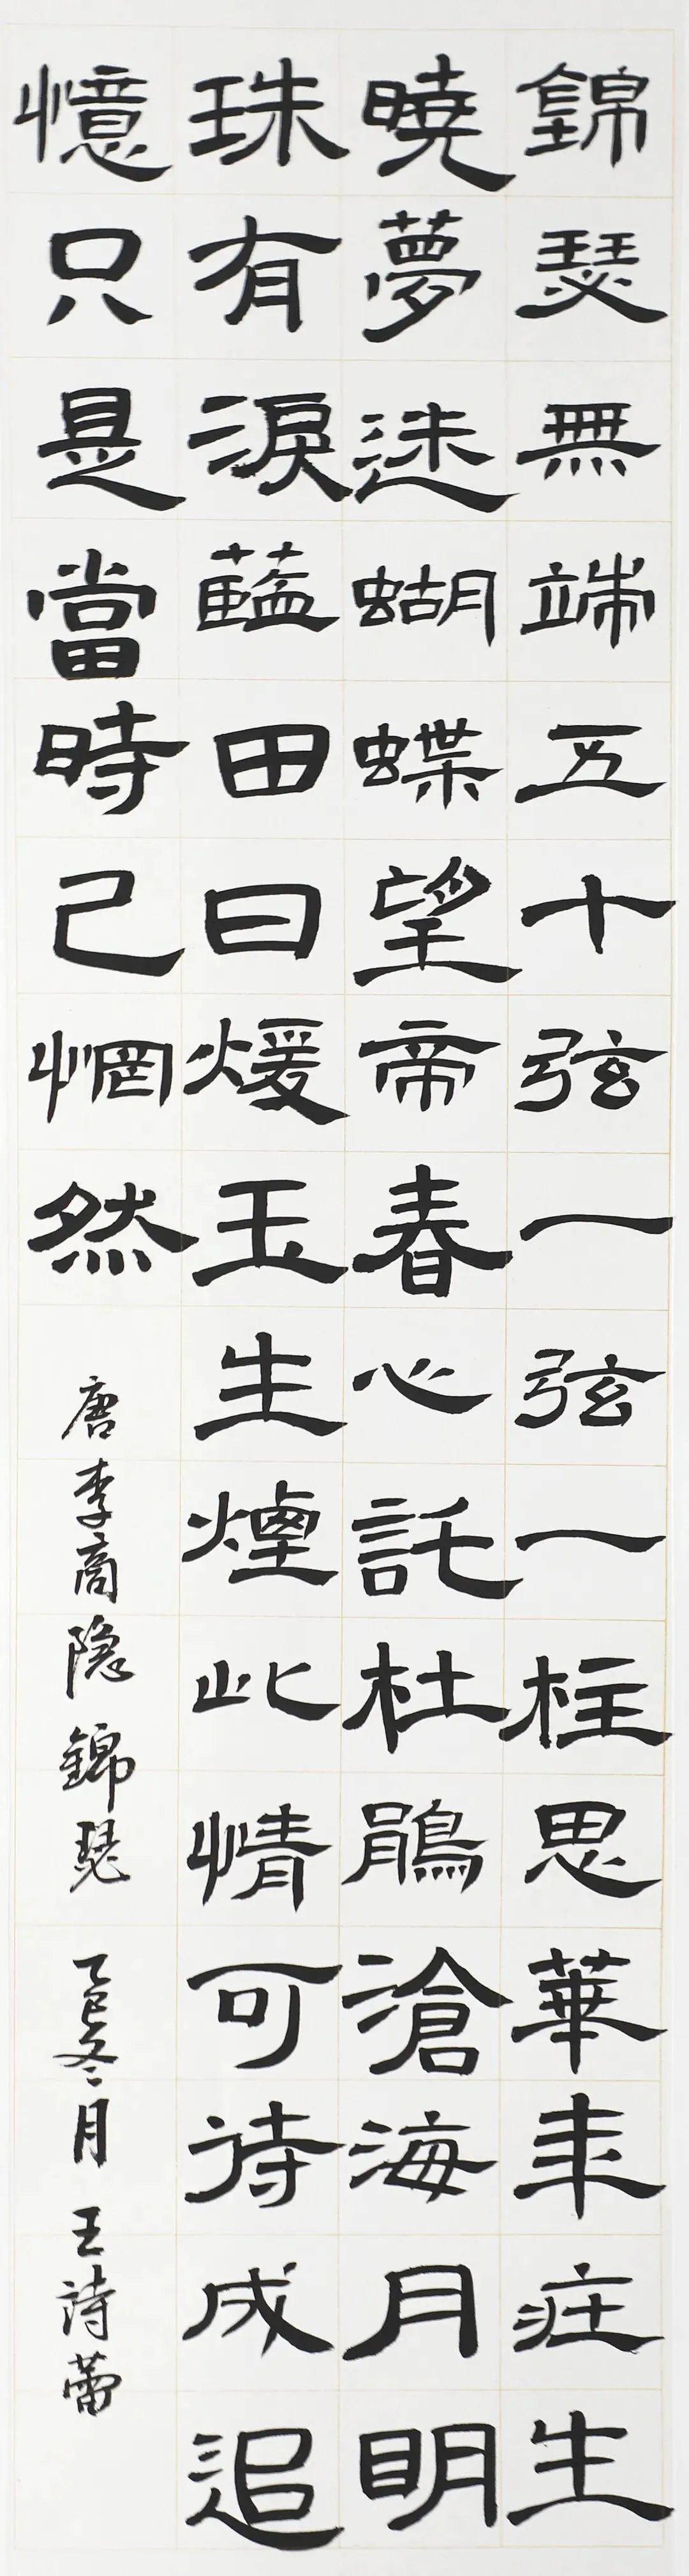 錦瑟無端五十弦一弦一柱思華年莊生
曉夢迷蝴蝶望帝春心託杜鵑滄海月明
珠有淚藍田日煖玉生煙此情可待成追
憶只是當時已惘然
唐李商隐錦瑟 乙巳冬月 王詩蕾